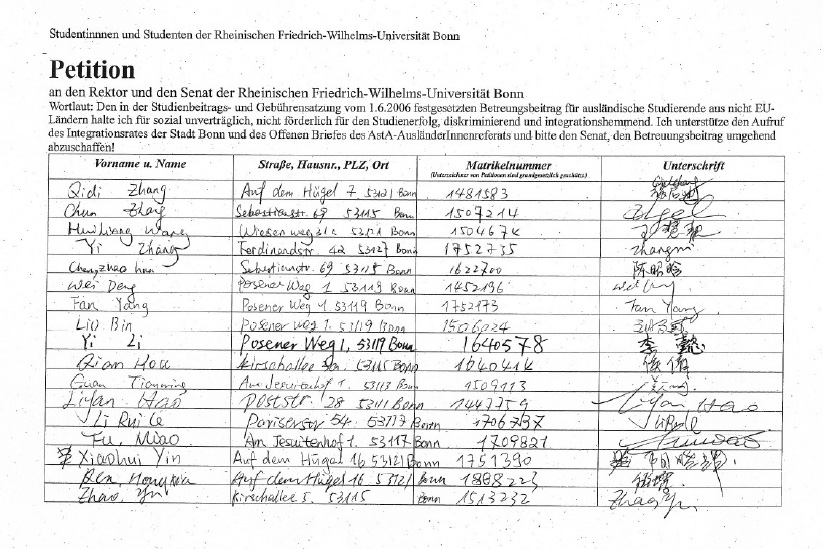 Studentinnnen und Studenten der Rheinischen Friedrich-Wilhelms-Universität Bonn
Petition
an den Rektor und den Senat der Rheinischen Friedrich-Wilhelms-Universität Bonn
Wortlaut: Den in der Studienbeitrags- und Gebührensatzung vom 1.6.2006 festgesetzten Betreungsbeitrag für ausländische Studierende aus nicht EU-
Ländern halte ich für sozial unverträglich, nicht förderlich für den Studienerfolg, diskriminierend und integrationshemmend. Ich unterstütze den Aufruf
des Integrationsrates der Stadt Bonn und des Offenen Briefes des AstA-AusländerInnenreferats und bitte den Senat, den Betreuungsbeitrag umgehend
abzuschaffen!
Vorname u. Name Straße, Hausnr., PLZ, Ort Matrikelnummer Unterschrift
(Unterzeichner von Petitionen sind grundgesetzlich geschützt)
Qidi Zhang Auf dem Hügel 7, 53121 Bonn 1481583
Chun Zhang Sebastianstr. 69 53115 Bonn 1507214
Huiliang Wang Wiesenweg 53121 Bonn 150467
Yi Zhang Ferdinandstr. 42 53127 Bonn 1752735
Sebastianstr. 69 53115 Bonn 1622700 陈昭晗
Wei Deng Posener Weg 1 53119 Bonn 1452196
Fan Yang Posener Weg 1 53119 Bonn 1752173 Fan Yang
Liu Bin Posener Weg 1. 53119 Bonn 1506024
Yi Li Posener Weg 1, 53119 Bonn 1640578 李懿
Qian Hou Kirschallee 53115 Bonn 1640414
Guan Tianming Am Jesuitenhof 1. 53117 Bonn 1509113
Liyan Hao Poststr. 28 53111 Bonn 1447759 Liyan Hao
Li Ruice Pariserstr 54. 53117 Bonn 1706737
Fu, Miao Am Jesuitenhof 1. 53117 Bonn 1709821
Xiaohui Yin Auf dem Hügel 16 53121 Bonn 1751390
Auf dem Hügel 16 53121 Bonn 1888223
Zhao, Yu Kirschallee 5. 53115 Bonn 1513232